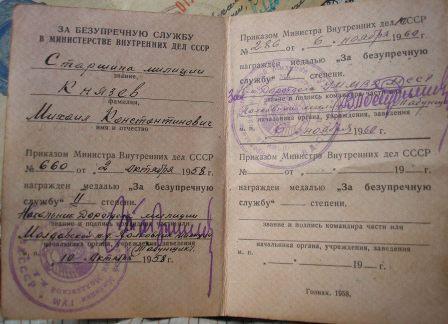 ЗА БЕЗУПРЕЧНУЮ СЛУЖБУ
В МИНИСТЕРСТВЕ ВНУТРЕННИХ ДЕЛ СССР
Старшина милиции
звание,
Князев
фамилия,
Михаил Константинович
имя и отчество
Приказом Министра Внутренних дел СССР
№ 660 от 2 октября 1958 г.
награжден медалью „За безупречную
службу“ II степени.
Начальник Доротдела милиции
Молдавской ж.д. Полковник милиции
звание и подпись командира части или
начальника органа, учреждения, заведения
м. п. (Табунщик)
10 октября 1958 г.
Приказом Министра Внутренних дел СССР
№ 286 от 6 ноября 1960 г.
награжден медалью „За безупречную
службу“ I степени.
Доротдела
звание и подпись командира части или
Полковник милиции
начальника органа, учреждения, заведения
м. п. ноября 1960 г.
Приказом Министра Внутренних дел СССР
№ — от — 19 — г.
награжден медалью „За безупречную
службу“ — степени.
звание и подпись командира части или
начальника органа, учреждения, заведения
м. п. — 19 — г.
Гознак. 1958.